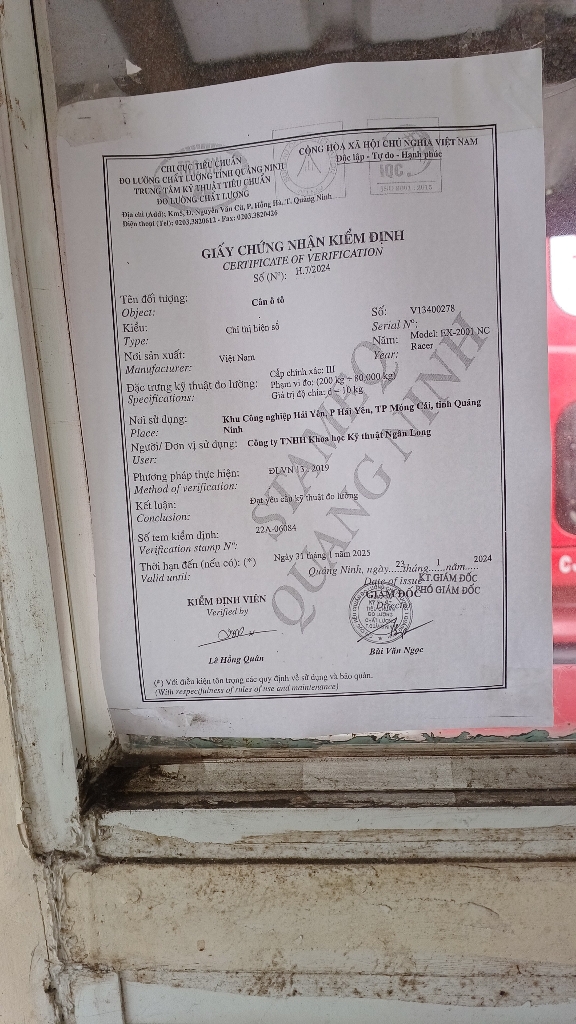 CHI CỤC TIÊU CHUẨN
ĐO LƯỜNG CHẤT LƯỢNG TỈNH QUẢNG NINH
TRUNG TÂM KỸ THUẬT TIÊU CHUẨN
ĐO LƯỜNG CHẤT LƯỢNG
Địa chỉ (Add): Km5, Đ. Nguyễn Văn Cừ, P. Hồng Hà, T. Quảng Ninh
Điện thoại (Tel): 0203.3820612 - Fax: 0203.3820426
CỘNG HÒA XÃ HỘI CHỦ NGHĨA VIỆT NAM
Độc lập - Tự do - Hạnh phúc
IQC
GIẤY CHỨNG NHẬN KIỂM ĐỊNH
CERTIFICATE OF VERIFICATION
Số (N°): H.7/2024
Tên đối tượng: Cân ô tô
Object:
Kiểu: Chỉ thị hiện số
Type:
Số: V13400278
Serial N°:
Nơi sản xuất: Việt Nam
Manufacturer:
Năm: Model: EX-2001 NC
Year: Racer
Đặc trưng kỹ thuật đo lường: Cấp chính xác: III
Specifications: Phạm vi đo: (200 kg ÷ 80.000 kg)
Giá trị độ chia: d = 10 kg
Nơi sử dụng: Khu Công nghiệp Hải Yên, P Hải Yên, TP Móng Cái, tỉnh Quảng
Place: Ninh
Người/ Đơn vị sử dụng: Công ty TNHH Khoa học Kỹ thuật Ngân Long
User:
Phương pháp thực hiện: ĐLVN 13 : 2019
Method of verification:
Kết luận: Đạt yêu cầu kỹ thuật đo lường
Conclusion:
Số tem kiểm định: 22A-06084
Verification stamp N°:
Thời hạn đến (nếu có): (*) Ngày 31 tháng 1 năm 2025
Valid until:
Quảng Ninh, ngày 23 tháng 1 năm 2024
Date of issue
KIỂM ĐỊNH VIÊN
Verified by
KT.GIÁM ĐỐC
PHÓ GIÁM ĐỐC
GIÁM ĐỐC
Director
Lê Hồng Quân
Bùi Văn Ngọc
(*) Với điều kiện tôn trọng các quy định về sử dụng và bảo quản.
(With respectfulness of rules of use and maintenance)
STAMEQ
QUANG NINH